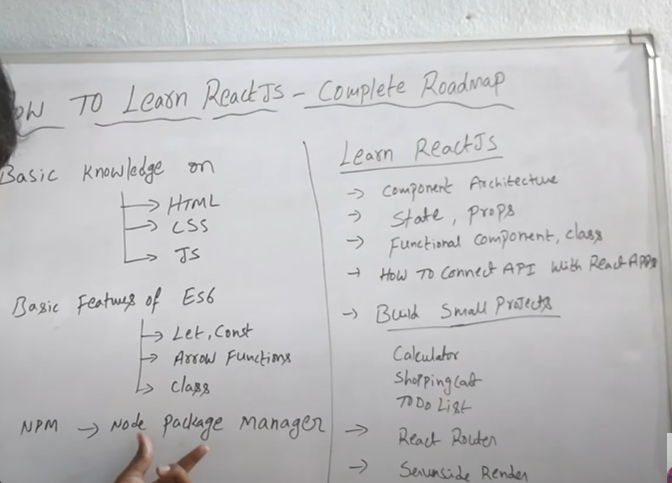 How To Learn ReactJS - Complete Roadmap
Basic Knowledge on
→ HTML
→ CSS
→ JS
Basic Features of ES6
→ Let, Const
→ Arrow Functions
→ class
NPM → Node Package Manager
Learn ReactJS
→ Component Architecture
→ State, Props
→ Functional Component, class
→ How To Connect API With React Apps
→ Build Small Projects
Calculator
Shopping Cart
ToDo List
→ React Router
→ Serverside Render